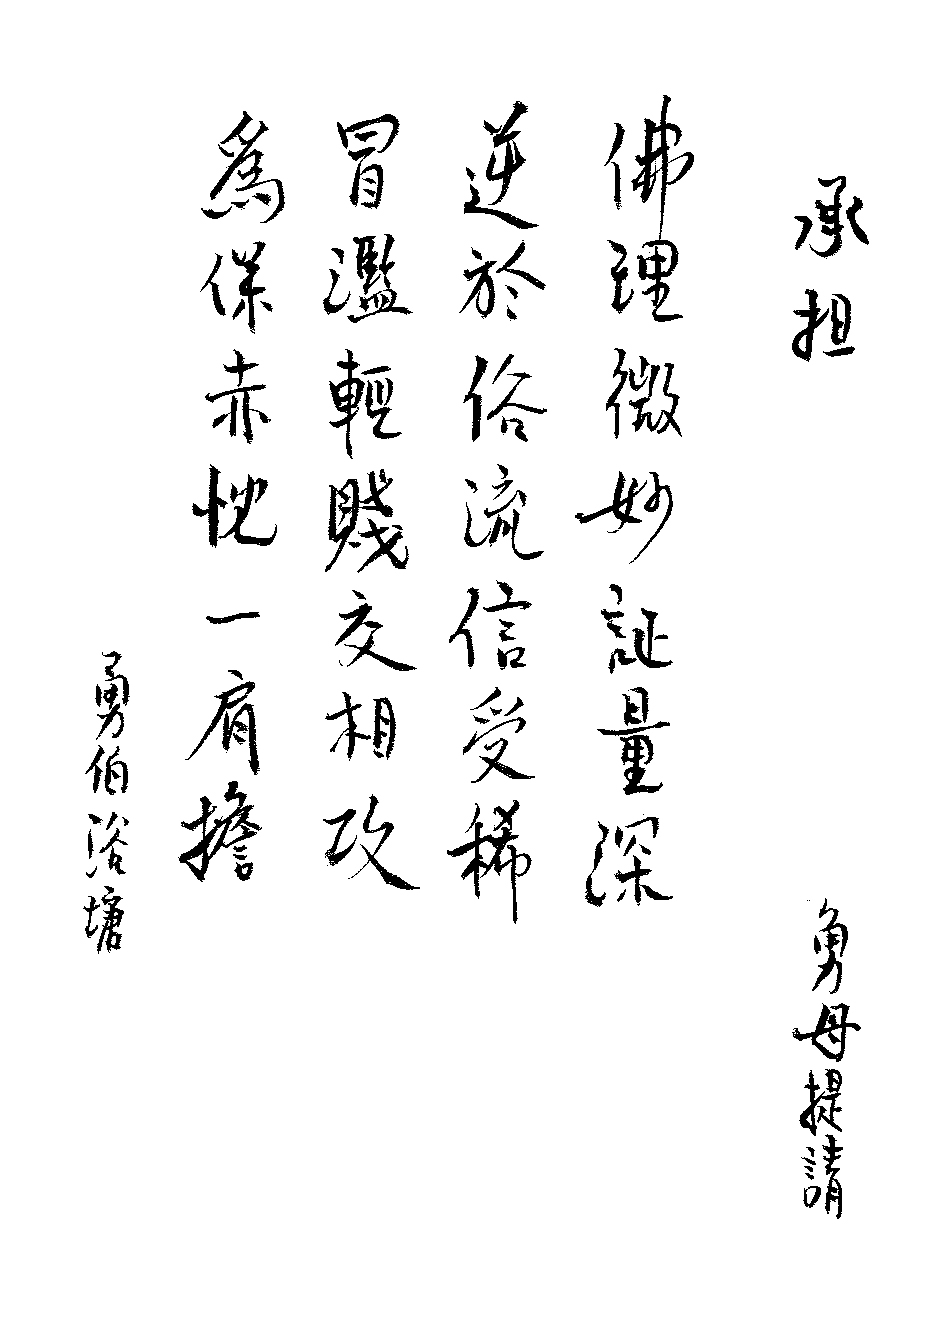 承担
勇母提請
佛理微妙証量深
逆於俗流信受稀
冒濫輕賤交相攻
為保赤忱一肩擔
勇伯浴塘